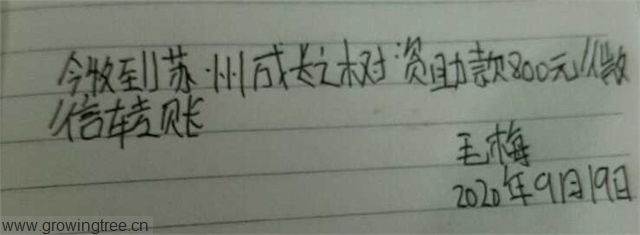 今收到苏州成长之树资助款800元/微
信转账
毛梅
2020年9月19日
www.growingtree.cn